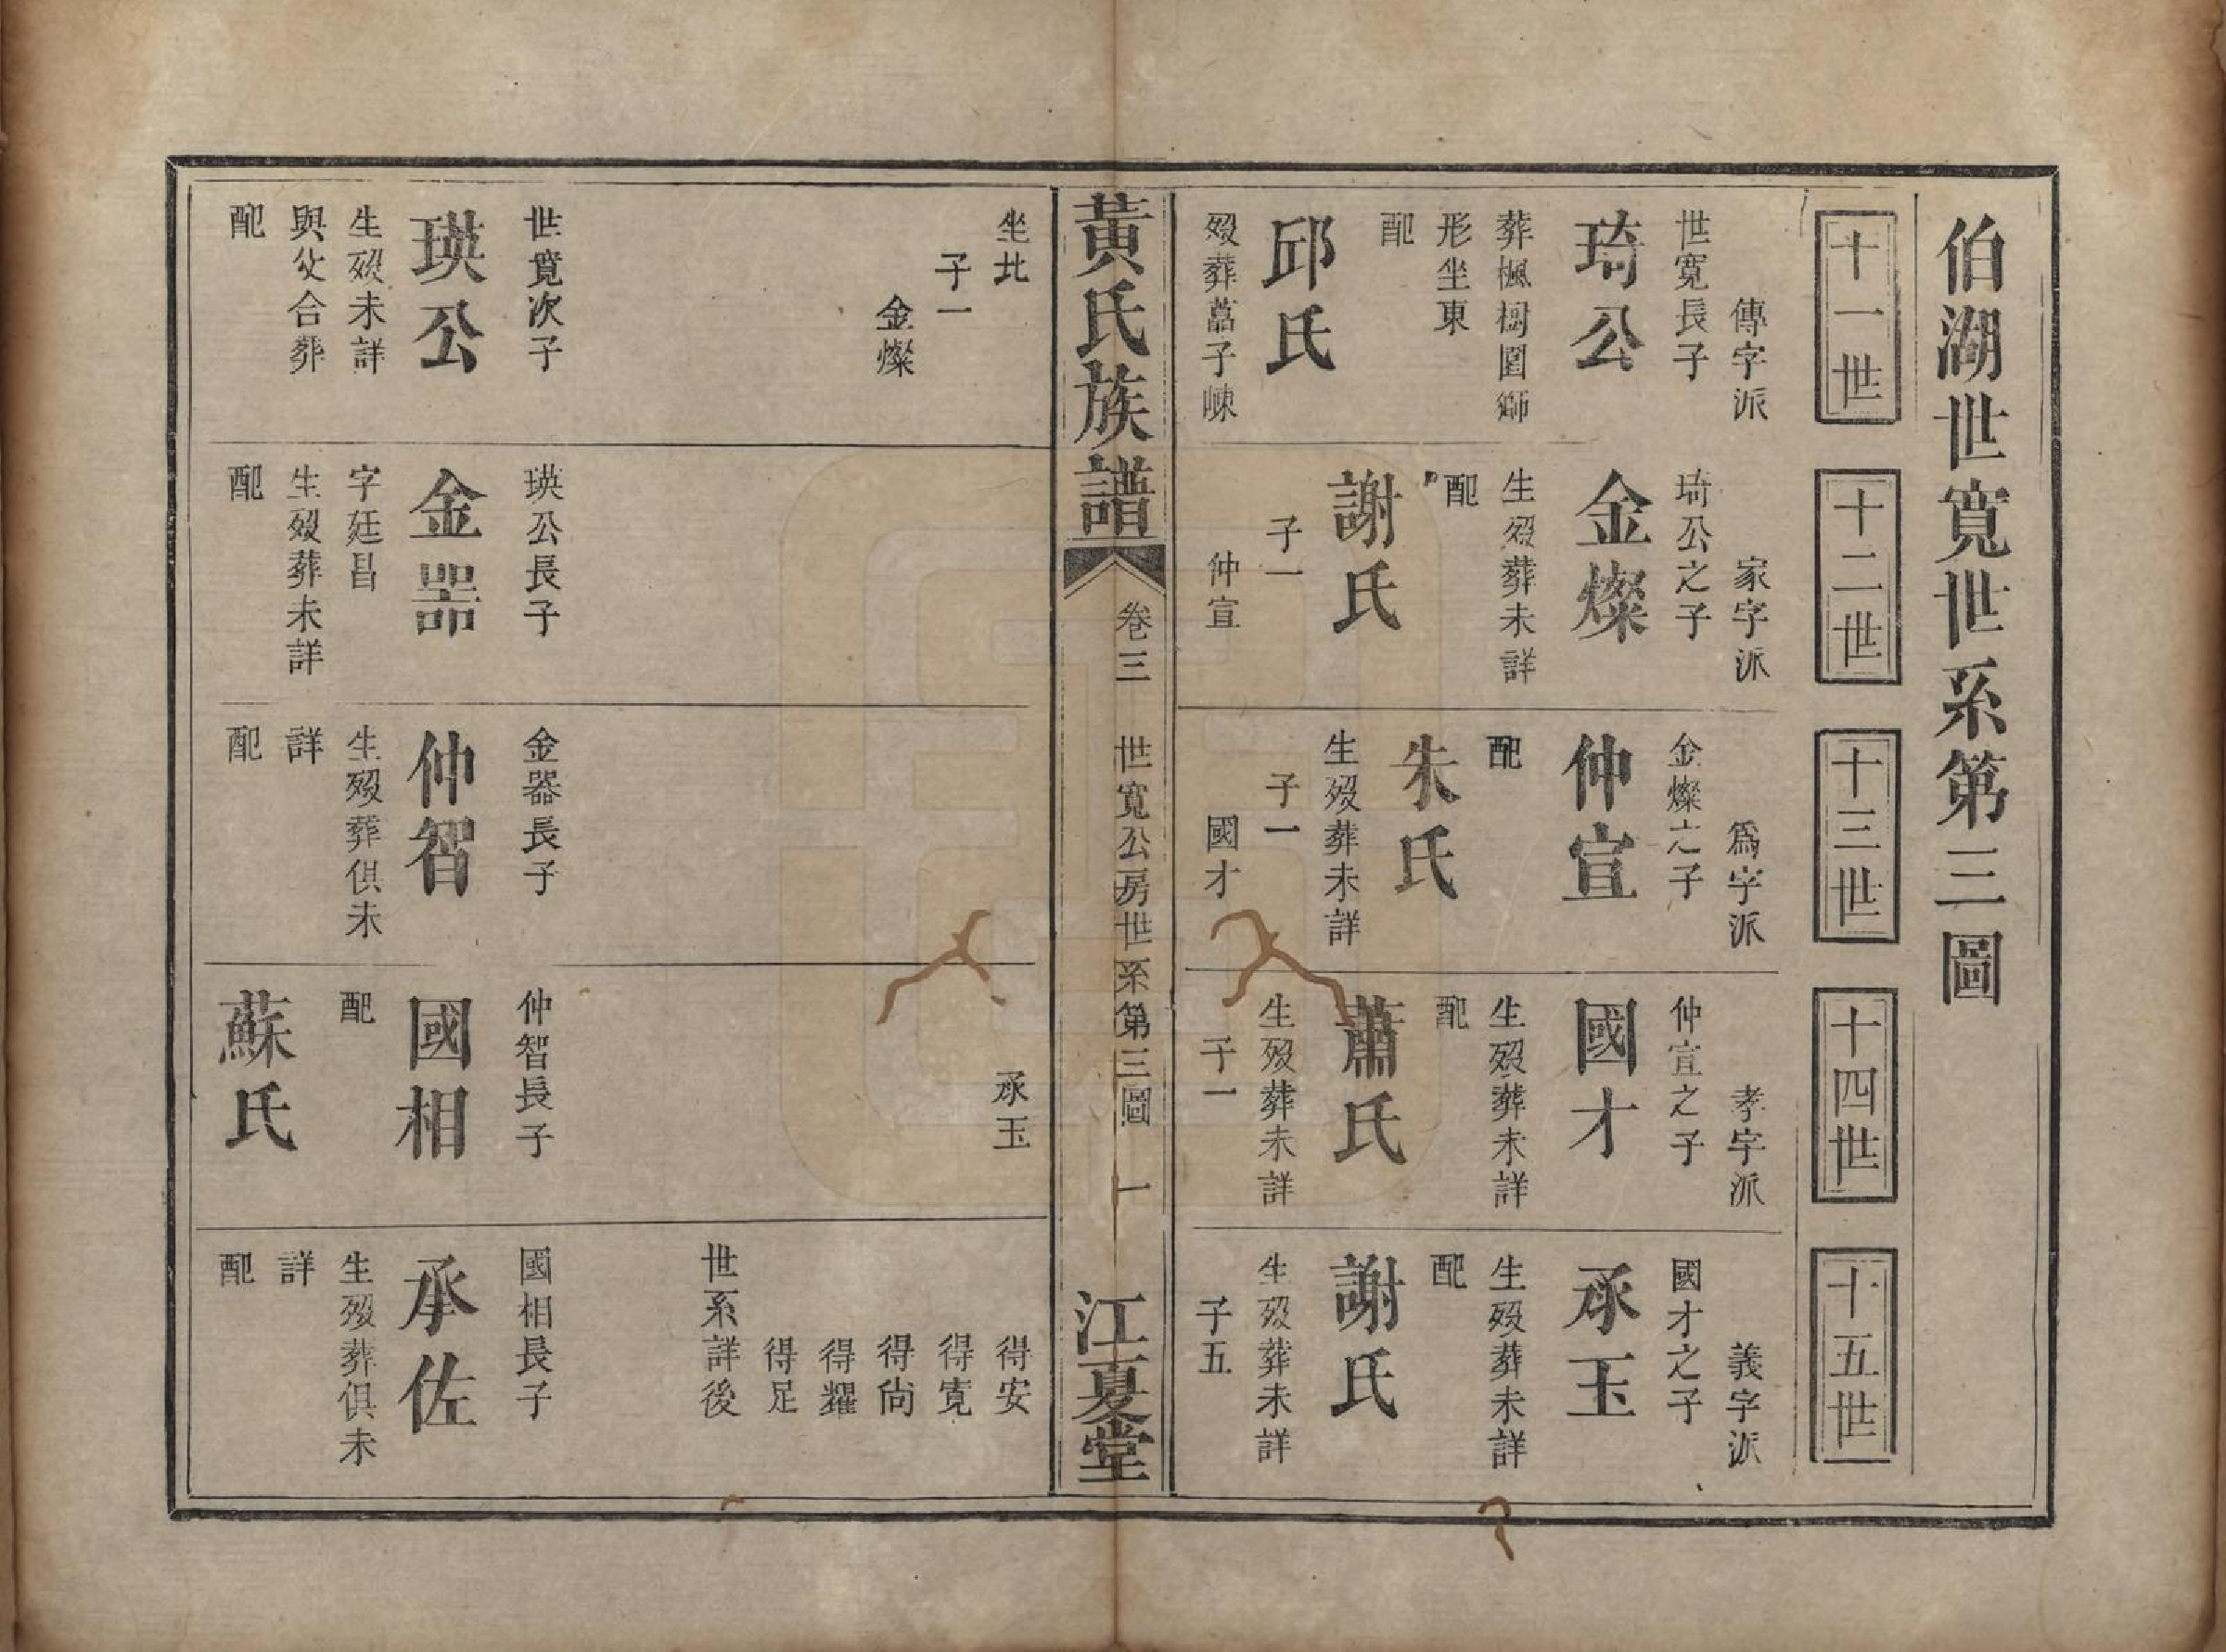 伯湖世寬世系第三圖
十一世
十二世
十三世
十四世
十五世
傳字派
世寬長子
琦公
葬楓樹園獅
形坐東
配
邱氏
歿葬藠子崠
家字派
琦公之子
金燦
生歿葬未詳
配
謝氏
子一
仲宣
為字派
金燦之子
仲宣
配
朱氏
生歿葬未詳
子一
國才
孝字派
仲宣之子
國才
生歿葬未詳
配
蕭氏
生歿葬未詳
子一
義字派
國才之子
承玉
生歿葬未詳
配
謝氏
生歿葬未詳
子五
黃氏族譜
卷三
世寬公房世系第三圖
一
江夏堂
坐北
子一
金燦
世寬次子
瑛公
生歿未詳
與父合葬
配
瑛公長子
金器
字廷昌
生歿葬未詳
配
金器長子
仲智
生歿葬俱未
詳
配
承玉
仲智長子
國相
配
蘇氏
得安
得寬
得尙
得耀
得足
世系詳後
國相長子
承佐
生歿葬俱未
詳
配